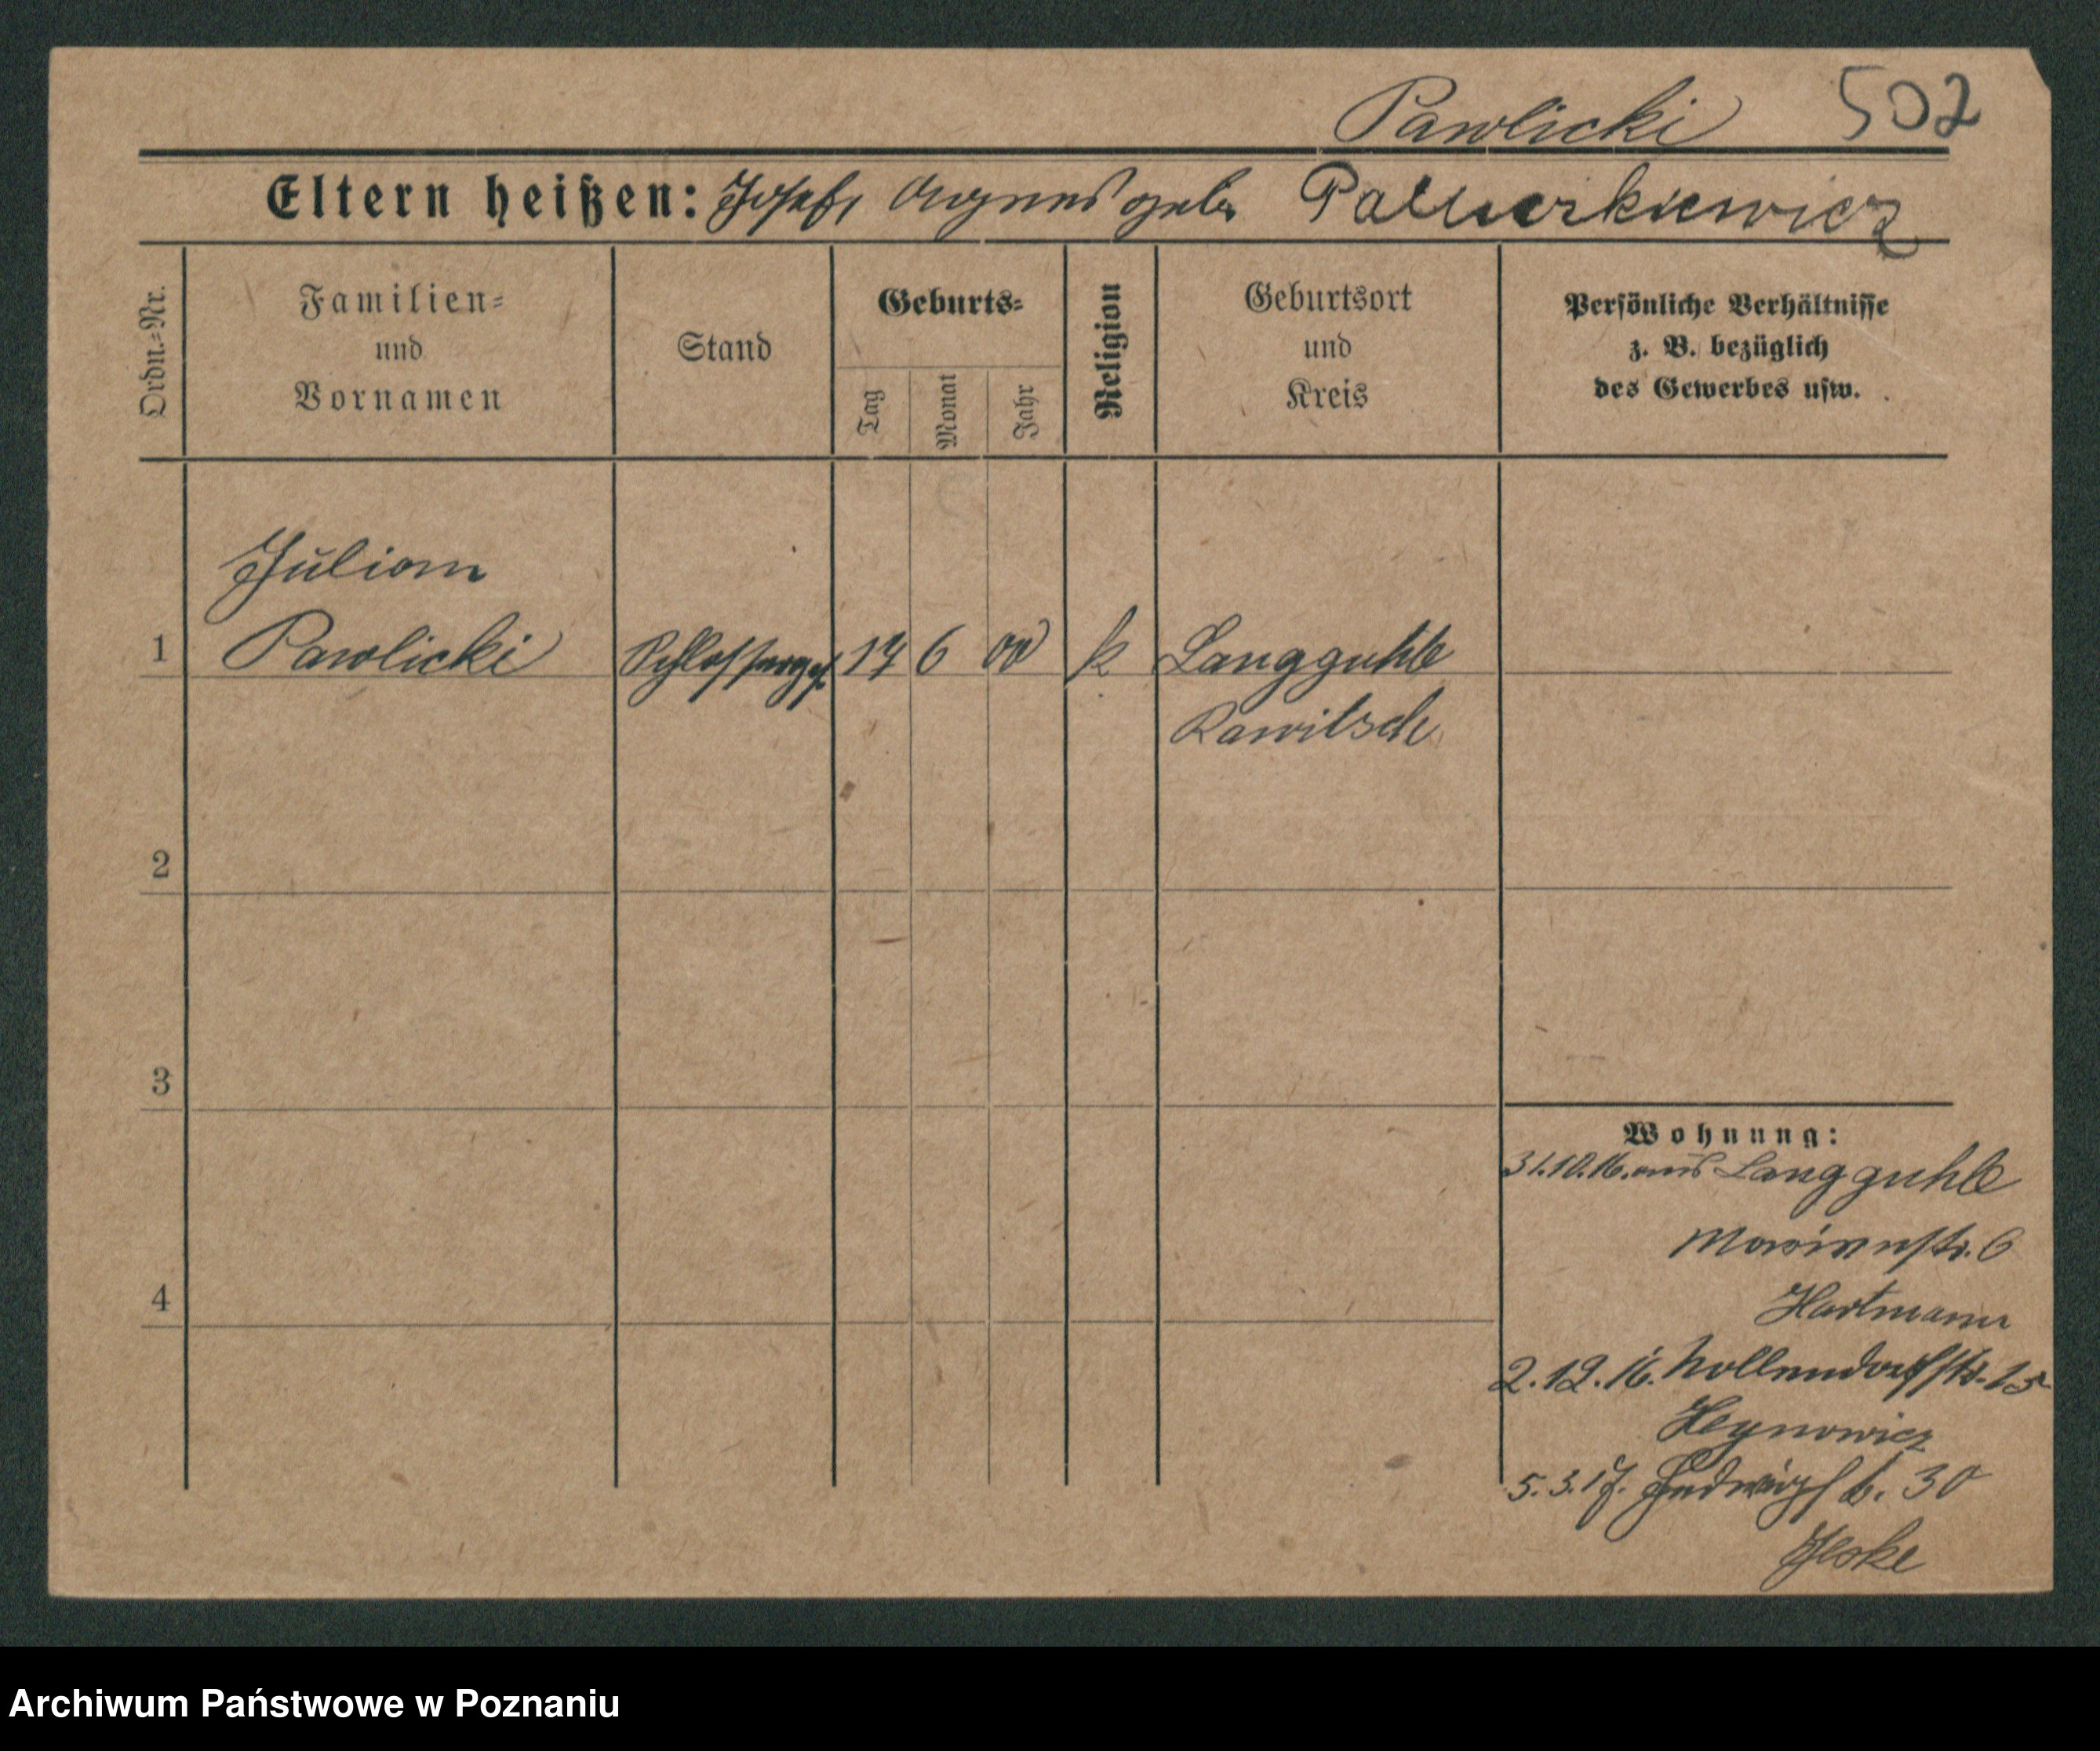 Pawlicki 502
Eltern heißen: Josef, Agnes geb.
Ordn.=Nr.
Familien=
und
Vornamen
Stand
Geburts=
Tag
Monat
Jahr
Religion
Geburtsort
und
Kreis
Persönliche Verhältnisse
z. B. bezüglich
des Gewerbes usw.
Julian
1 Pawlicki Schlosserges. 17 6 00 k Langguhle
Rawitsch
2
3
4
Wohnung:
31.10.16. aus Langguhle
str. 6
Hartmann
2.12.16. Nollendorfstr. 15
Heynowicz
5.3.17. 30
Jeske
Archiwum Państwowe w Poznaniu